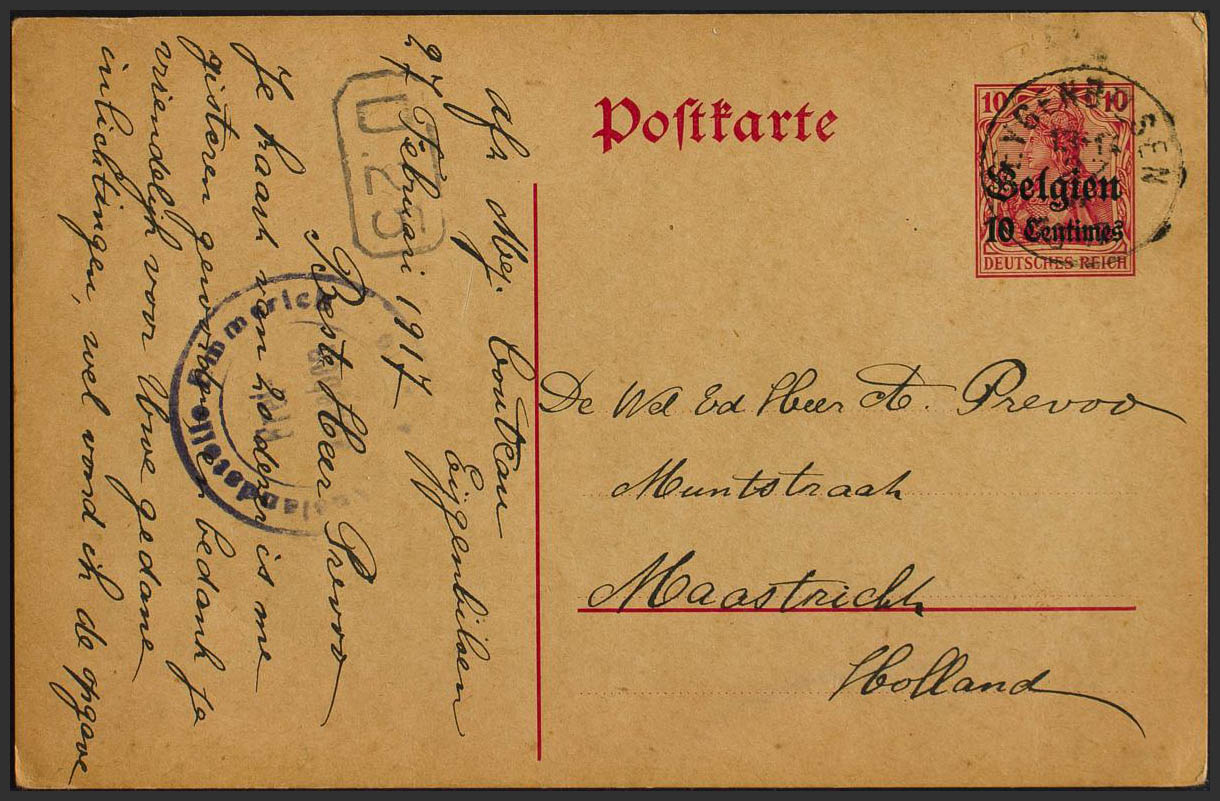 Postkarte
10 10
Belgien
10 Centimes
DEUTSCHES REICH
De Wel Ed Heer A. Prevoo
Muntstraat
Maastricht
Holland
U.25
afz Mej. Couteau
Eijgenbilsen
27 Februari 1917
Beste Heer Prevoo
Je kaart van is me
gisteren geworden bedank Je
vriendelijk voor Uwe gedane
inlichtingen, wel vond ik de opgave